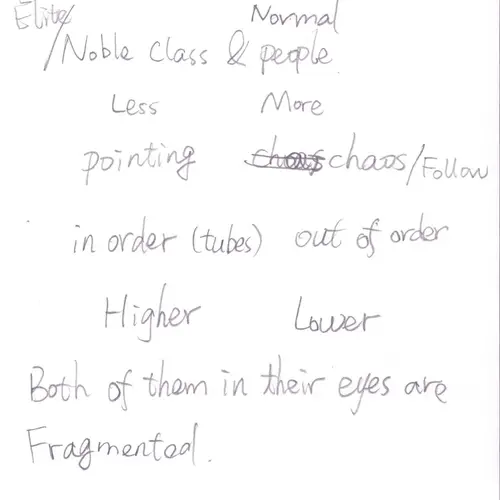 Elite Normal
/Noble class & people
Less More
pointing chaos/Follow
in order (tubes) out of order
Higher Lower
Both of them in their eyes are
Fragmented.